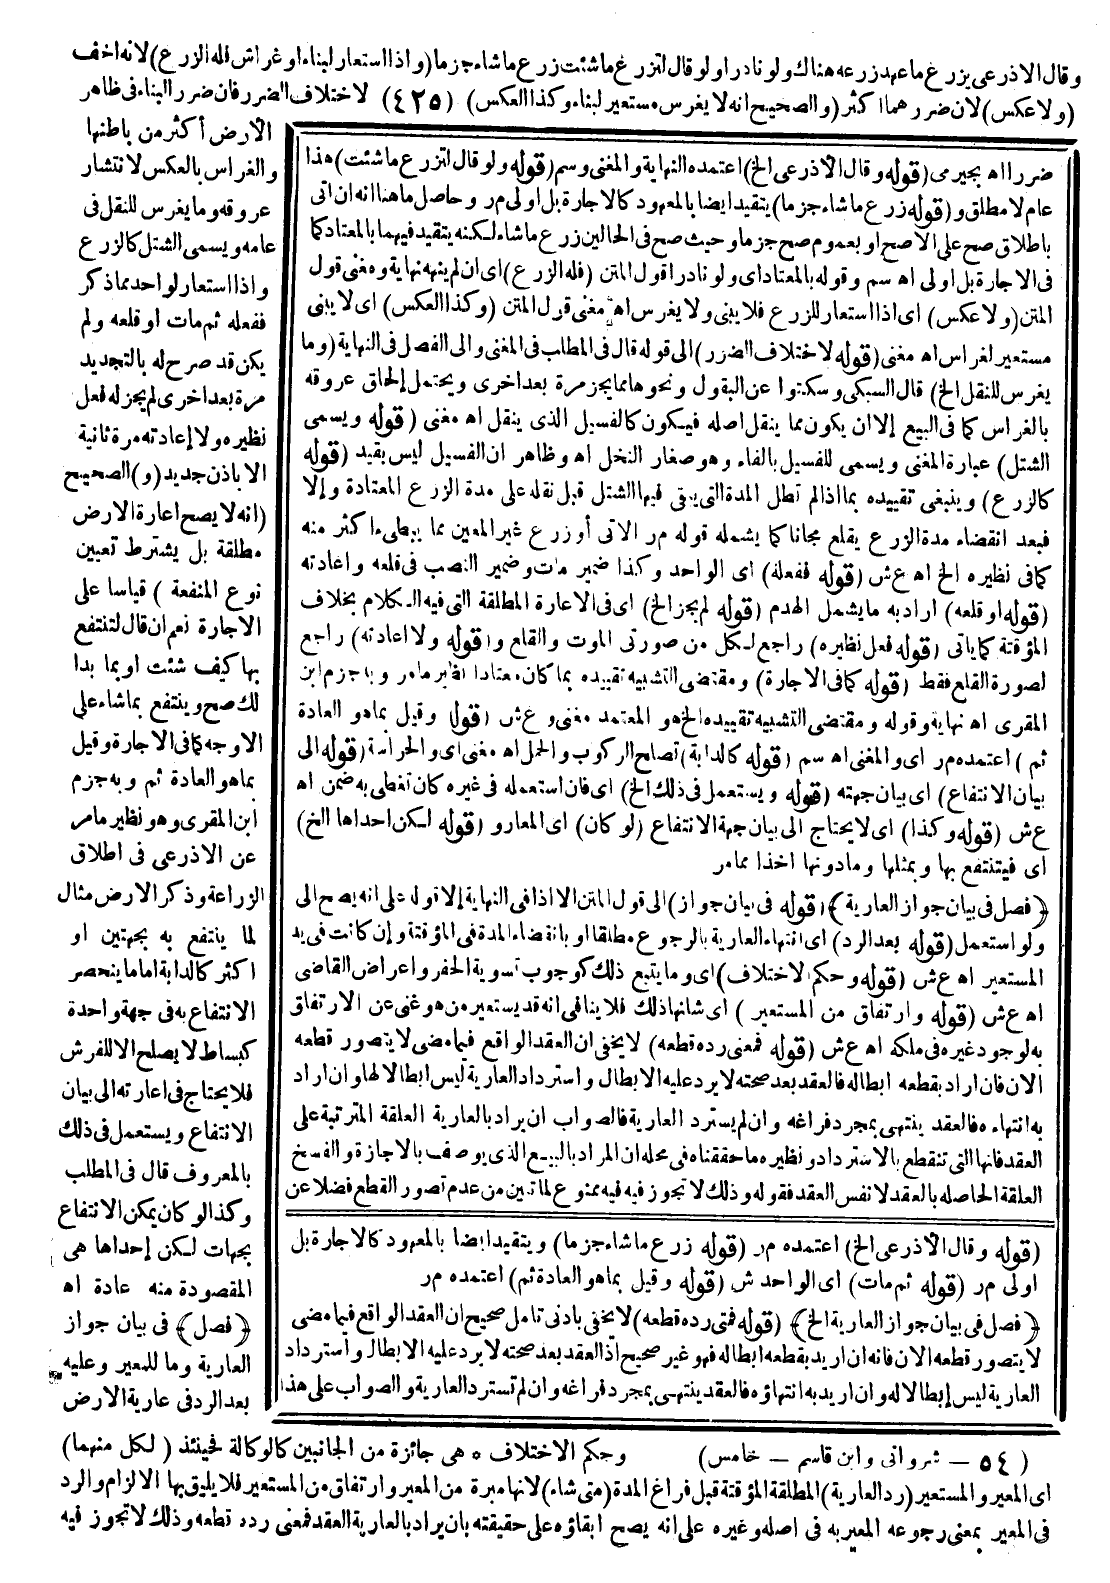 وقال الاذرعى يزرع ماعهد زرعه هناك ولو نادرا ولو قال لتزرع ماشئت زرع ماشاء جزما (واذا استعار لبناء او غراس فله الزرع) لانه اخف
(ولا عكس) لان ضررهما اكثر (والصحيح انه لا يغرس مستعير لبناء وكذا العكس) (٤٢٥) لاختلاف الضرر فان ضرر البناء فى ظاهر
الأرض أكثر من باطنها
والغراس بالعكس لانتشار
عروقه وما يغرس للنقل فى
عامه ويسمى الشتل كالزرع
واذا استعار لواحد مما ذكر
ففعله ثم مات او قلعه ولم
يكن قد صرح له بالتجديد
مرة بعد اخرى لم يجز له فعل
نظيره ولا إعادته مرة ثانية
الا باذن جديد (و) الصحيح
(انه لا يصح اعارة الارض
مطلقة بل يشترط تعيين
نوع المنفعة) قياسا على
الاجارة نعم ان قال لتنتفع
بها كيف شئت او بما بدا
لك صح وينتفع بما شاء على
الاوجه كما فى الاجارة وقيل
بما هو العادة ثم وبه جزم
ابن المقرى وهو نظير ما مر
عن الاذرعى فى اطلاق
الزراعة وذكر الارض مثال
لما ينتفع به بجهتين او
اكثر كالدابة اما ما ينحصر
الانتفاع به فى جهة واحدة
كبساط لا يصلح الا للفرش
فلا يحتاج فى اعارته الى بيان
الانتفاع ويستعمل فى ذلك
بالمعروف قال فى المطلب
وكذا لو كان يمكن الانتفاع
بجهات لكن إحداها هى
المقصودة منه عادة اه
﴿فصل﴾ فى بيان جواز
العارية وما للمعير وعليه
بعد الرد فى عارية الارض
ضررا اه بجيرمى (قوله وقال الأذرعى الخ) اعتمده النهاية والمغنى وسم (قوله ولو قال لتزرع ماشئت) هذا
عام لا مطلق و (قوله زرع ماشاء جزما) يتقيد ايضا بالمعهود كالاجارة بل اولى مر وحاصل ما هنا انه ان اتى
باطلاق صح على الاصح او بعموم صح جزما وحيث صح فى الحالين زرع ماشاء لكنه يتقيد فيهما بالمعتاد كما
فى الاجارة بل اولى اه سم وقوله بالمعتاد اى ولو نادرا قول المتن (فله الزرع) اى ان لم ينهه نهاية ومغنى قول
المتن (ولا عكس) اى اذا استعار للزرع فلا يبنى ولا يغرس اه مغنى قول المتن (وكذا العكس) اى لا يبنى
مستعير لغراس اه مغنى (قوله لاختلاف الضرر) الى قوله قال فى المطلب فى المغنى والى الفصل فى النهاية (وما
يغرس للنقل الخ) قال السبكى وسكتوا عن البقول ونحوها مما يجز مرة بعد اخرى ويحتمل إلحاق عروقه
بالغراس كما فى البيع إلا ان يكون مما ينقل اصله فيكون كالفسيل الذى ينقل اه مغنى (قوله ويسمى
الشتل) عبارة المغنى ويسمى للفسيل بالفاء وهو صغار النخل اه وظاهر ان الفسيل ليس بقيد (قوله
كالزرع) وينبغى تقييده بما اذا لم تطل المدة التى يبقى فيها الشتل قبل نقله على مدة الزرع المعتادة وإلا
فبعد انقضاء مدة الزرع يقلع مجانا كما يشمله قوله مر الاتى أو زرع غير المعين مما يبطىء اكثر منه
كما فى نظيره الخ اه ع ش (قوله ففعله) اى الواحد وكذا ضمير مات وضمير النصب فى قلعه واعادته
(قوله او قلعه) اراد به ما يشمل الهدم (قوله لم يجز الخ) اى فى الاعارة المطلقة التى فيه الكلام بخلاف
المؤقتة كما ياتى (قوله فعل نظيره) راجع لكل من صورتى الموت والقلع و (قوله ولا اعادته) راجع
لصورة القلع فقط (قوله كما فى الاجارة) ومقتضى التشبيه تقييده بما كان معتادا نظير ما مر وبه جزم ابن
المقرى اه نهاية وقوله ومقتضى التشبيه تقييده الخ هو المعتمد مغنى وع ش (قوله وقيل بما هو العادة
ثم) اعتمده مر اى والمغنى اه سم (قوله كالدابة) تصلح للركوب والحمل اه مغنى اى والحراسة (قوله الى
بيان الانتفاع) اى بيان جهته (قوله ويستعمل فى ذلك الخ) اى فان استعمله فى غيره كان تغطى به ضمن اه
ع ش (قوله وكذا) اى لا يحتاج الى بيان جهة الانتفاع (لو كان) اى المعار و (قوله لكن احداها الخ)
اى فيتنتفع بها وبمثلها وما دونها اخذا مما مر
﴿فصل فى بيان جواز العارية﴾ (قوله فى بيان جواز) الى قول المتن الا اذا فى النهاية إلا قوله على انه يصح الى
ولو استعمل (قوله بعد الرد) اى انتهاء العارية بالرجوع مطلقا او بانقضاء المدة فى المؤقتة وإن كانت فى يد
المستعير اه ع ش (قوله وحكم الاختلاف) اى وما يتبع ذلك كوجوب تسوية الحفر واعراض القاضى
اه ع ش (قوله وارتفاق من المستعير) اى شانها ذلك فلا ينافى انه قد يستعير من هو غنى عن الارتفاق
به لوجود غيره فى ملكه اه ع ش (قوله فمعنى رده قطعه) لا يخفى ان العقد الواقع فيما مضى لا يتصور قطعه
الان فان اراد بقطعه ابطاله فالعقد بعد صحته لا يرد عليه الابطال واسترداد العارية ليس ابطالا لها وان اراد
به انتهاءه فالعقد ينتهى بمجرد فراغه وان لم يسترد العارية فالصواب ان يراد بالعارية العلقة المترتبة على
العقد فانها التى تنقطع بالاسترداد ونظيره ما حققناه فى محله ان المراد بالبيع الذى يوصف بالاجازة والفسخ
العلقة الحاصلة بالعقد لا نفس العقد فقوله وذلك لا تجوز فيه فيه ممنوع لما تبين من عدم تصور القطع فضلا عن
(قوله وقال الأذرعى الخ) اعتمده مر (قوله زرع ماشاء جزما) ويتقيد ايضا بالمعهود كالاجارة بل
اولى مر (قوله ثم مات) اى الواحد ش (قوله وقيل بما هو العادة ثم) اعتمده مر
﴿فصل فى بيان جواز العارية الخ﴾ (قوله فمتى رده قطعه) لا يخفى بادنى تامل صحيح ان العقد الواقع فيما مضى
لا يتصور قطعه الان فانه ان اريد بقطعه ابطاله فهو غير صحيح اذ العقد بعد صحته لا يرد عليه الابطال واسترداد
العارية ليس إبطالا له وان اريد به انتهاؤه فالعقد ينتهى بمجرد فراغه وان لم تسترد العارية والصواب على هذا
(٥٤ – شروانى وابن قاسم – خامس) وحكم الاختلاف * هى جائزة من الجانبين كالوكالة فحينئذ (لكل منهما)
اى المعير والمستعير (رد العارية) المطلقة المؤقتة قبل فراغ المدة (متى شاء) لانها مبرة من المعير وارتفاق من المستعير فلا يليق بها الالزام والرد
فى المعير بمعنى رجوعه المعير به فى اصله وغيره على انه يصح ابقاؤه على حقيقته بان يراد بالعارية العقد فمعنى رده قطعه وذلك لا تجوز فيه